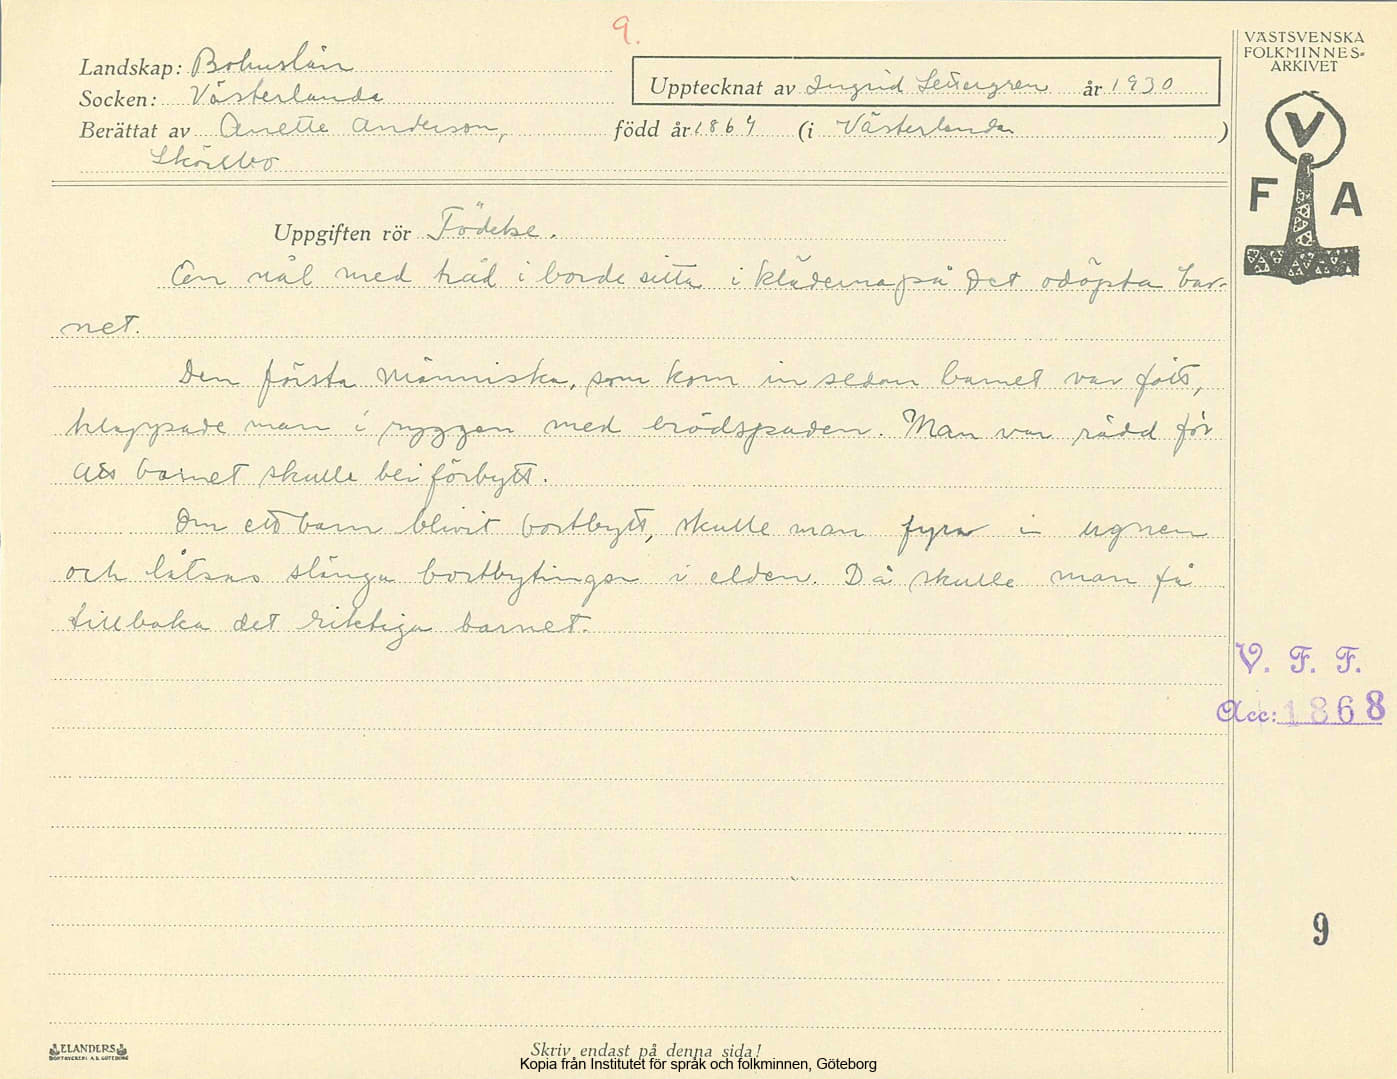 9.
VÄSTSVENSKA
FOLKMINNES-
ARKIVET
Landskap: Bohuslän
Socken: Västerlanda
Upptecknat av Ingrid Settergren år 1930
Berättat av Anette Anderson, född år 1864 (i Västerlanda)
Sköllbo
V
F A
Uppgiften rör Födelse.
En nål med tråd i borde sitta i kläderna på det odöpta bar-
net.
Den första människa, som kom in sedan barnet var fött,
klappade man i ryggen med brödspaden. Man var rädd för
att barnet skulle bli förbytt.
Om ett barn blivit bortbytt, skulle man fyra i ugnen
och låtsas slänga bortbytingen i elden. Då skulle man få
tillbaka det riktiga barnet.
V. F. F.
Acc: 1868
9
ELANDERS
BOKTRYCKERI A.B. GÖTEBORG
Skriv endast på denna sida!
Kopia från Institutet för språk och folkminnen, Göteborg